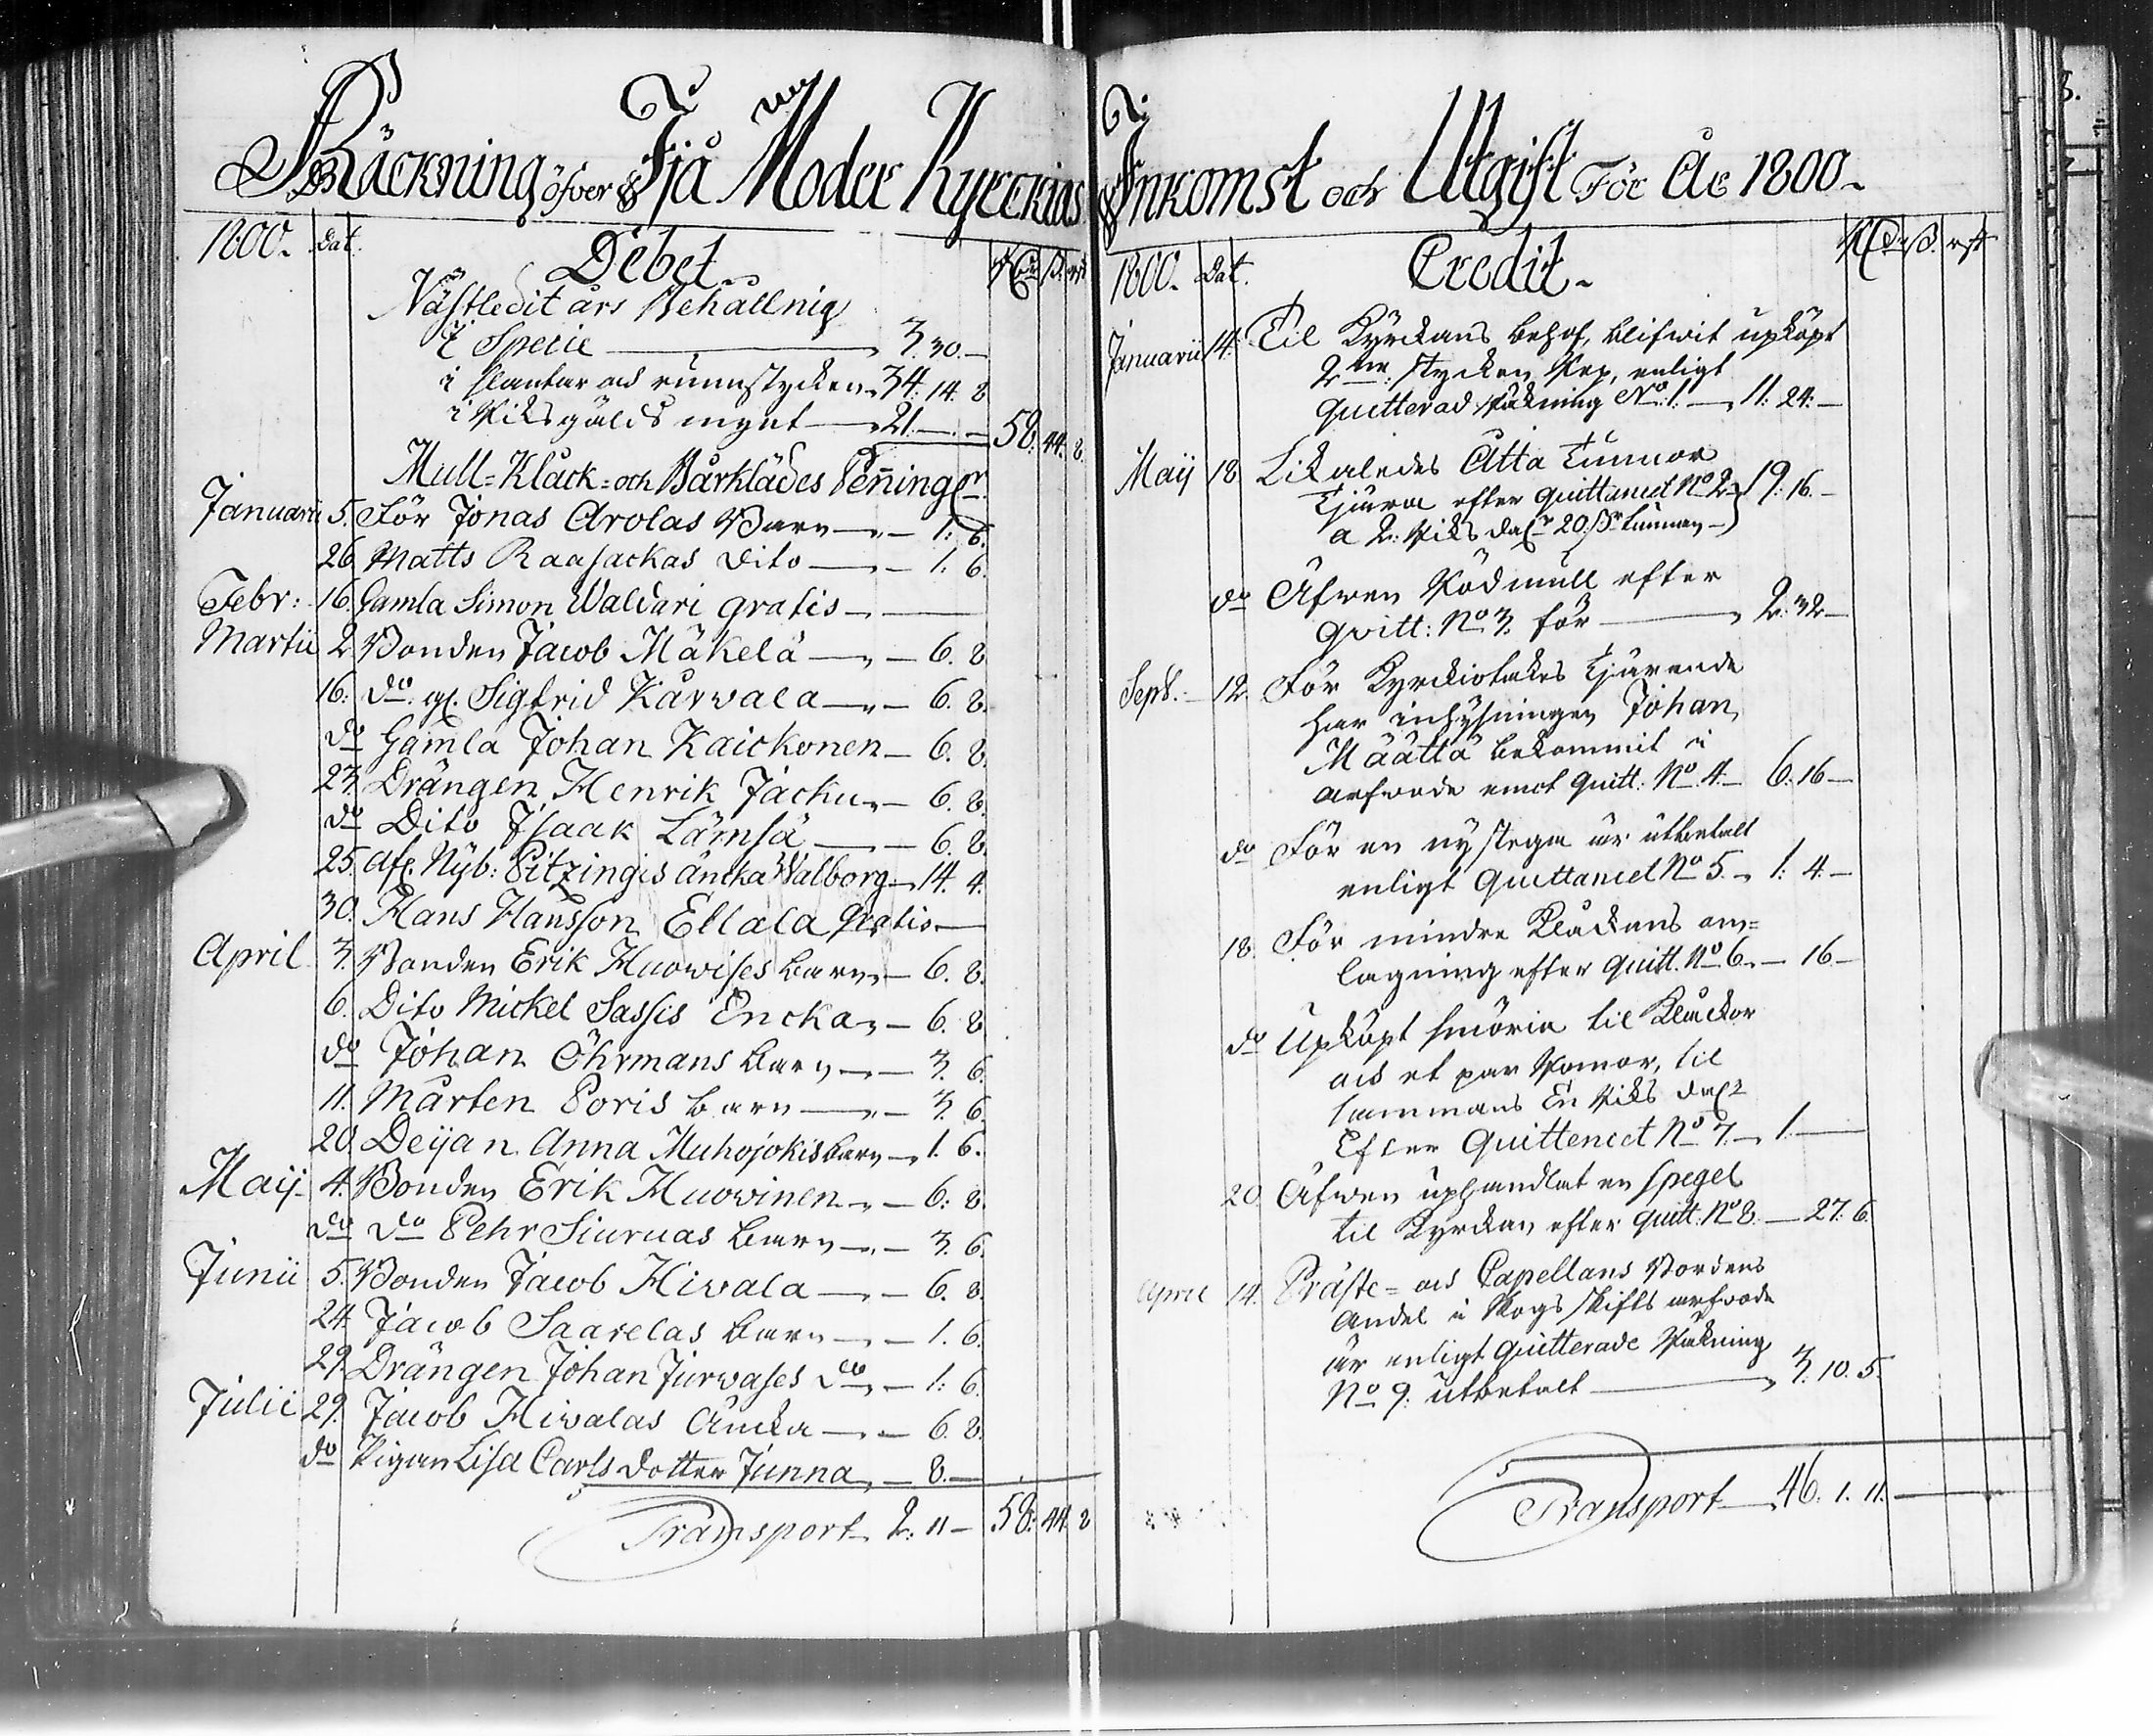 Räckning öfver Ijå Moder Kyrckias Inkomst och Utgift För År 1800.
1800. Dat. Debet.
Nästledit års Behållnig
I Specie 3. 30.
i slantar och runnstycken 34. 14. 8
i Riksgälds mynt 21. — 58. 44. 8.
Mull= Klåck= och Bårklädes Penningar
Januarii 5. För Jonas Arolas Barn 1: 6.
26 Matts Raasackas Dito 1. 6.
Febr: 16. Gamla Simon Waldari gratis
Martii 2 Bonden Jacob Mäkelä 6. 8
16. do gl. Sigfrid Karvala 6. 8.
do Gamla Johan Kaickonen 6. 8.
23. Drängen Henrik Jacku 6. 8.
do Dito Isaak Lämsä 6. 8.
25. Afl. Nyb: Pitzingis äncka Walborg 14. 4.
30. Hans Hansson Ellala Gratis
April 3. Bonden Erik Huowises barn 6. 8.
6. Dito Mickel Sassis Encka 6. 8
do Johan Öhrmans barn 3. 6.
11. Mårten Poris barn 3. 6.
20. Deijan Anna Muhojokis barn 1. 6.
Maij 4. Bonden Erik Huowinen 6: 8.
do do Pehr Siuruas barn 3. 6.
Junii 5. Bonden Jacob Hivala 6. 8.
24. Jacob Saarelas barn 1. 6.
29. Drängen Johan Jurwases do 1: 6.
Julii 29. Jacob Hivalas Äncka 6. 8.
do Pigan Lisa Carls Dotter Junna 8.
Transport 2: 11 — 58: 44. 8
1800. Dat. Credit.
Januarii 14. Til Kyrckans behof, blifwit upköpt
2ne stycken Rep, enligt
quitterad Räkning No. 1. 11. 24.
Maij 18 Likaledes Åtta Tunnor
Tjära efter quittancet No 2 19. 16.
a 2. Riks dal 20 ß Tunnan
do Äfwen Rödmull efter
Qvitt: No 3. för 2. 32
Sept. 12. För Kyrckiotakes tjärande
har inhysningen Johan
Määttä bekommit i
arfwode emot quitt: No 4. 6. 16
do För en ny stega är utbetalt
enligt Quittancet No 5. 1. 4
18. För mindre Klåckans om=
lagning efter quitt. No 6. 16
do Upköpt smöria til Klåckor
och et par Remar, til
sammans En Riks dal
Efter Quittencet No 7. 1.
20 Äfwen uphandlat en spegel
til Kyrckan efter quitt. No 8. 27. 6.
April 14. Präste= och Capellans Bordens
Andel i Skogs skifts arfwode
är enligt quitterade Räkning
No 9. utbetalt 3. 10. 5.
Transport 46. 1. 11.